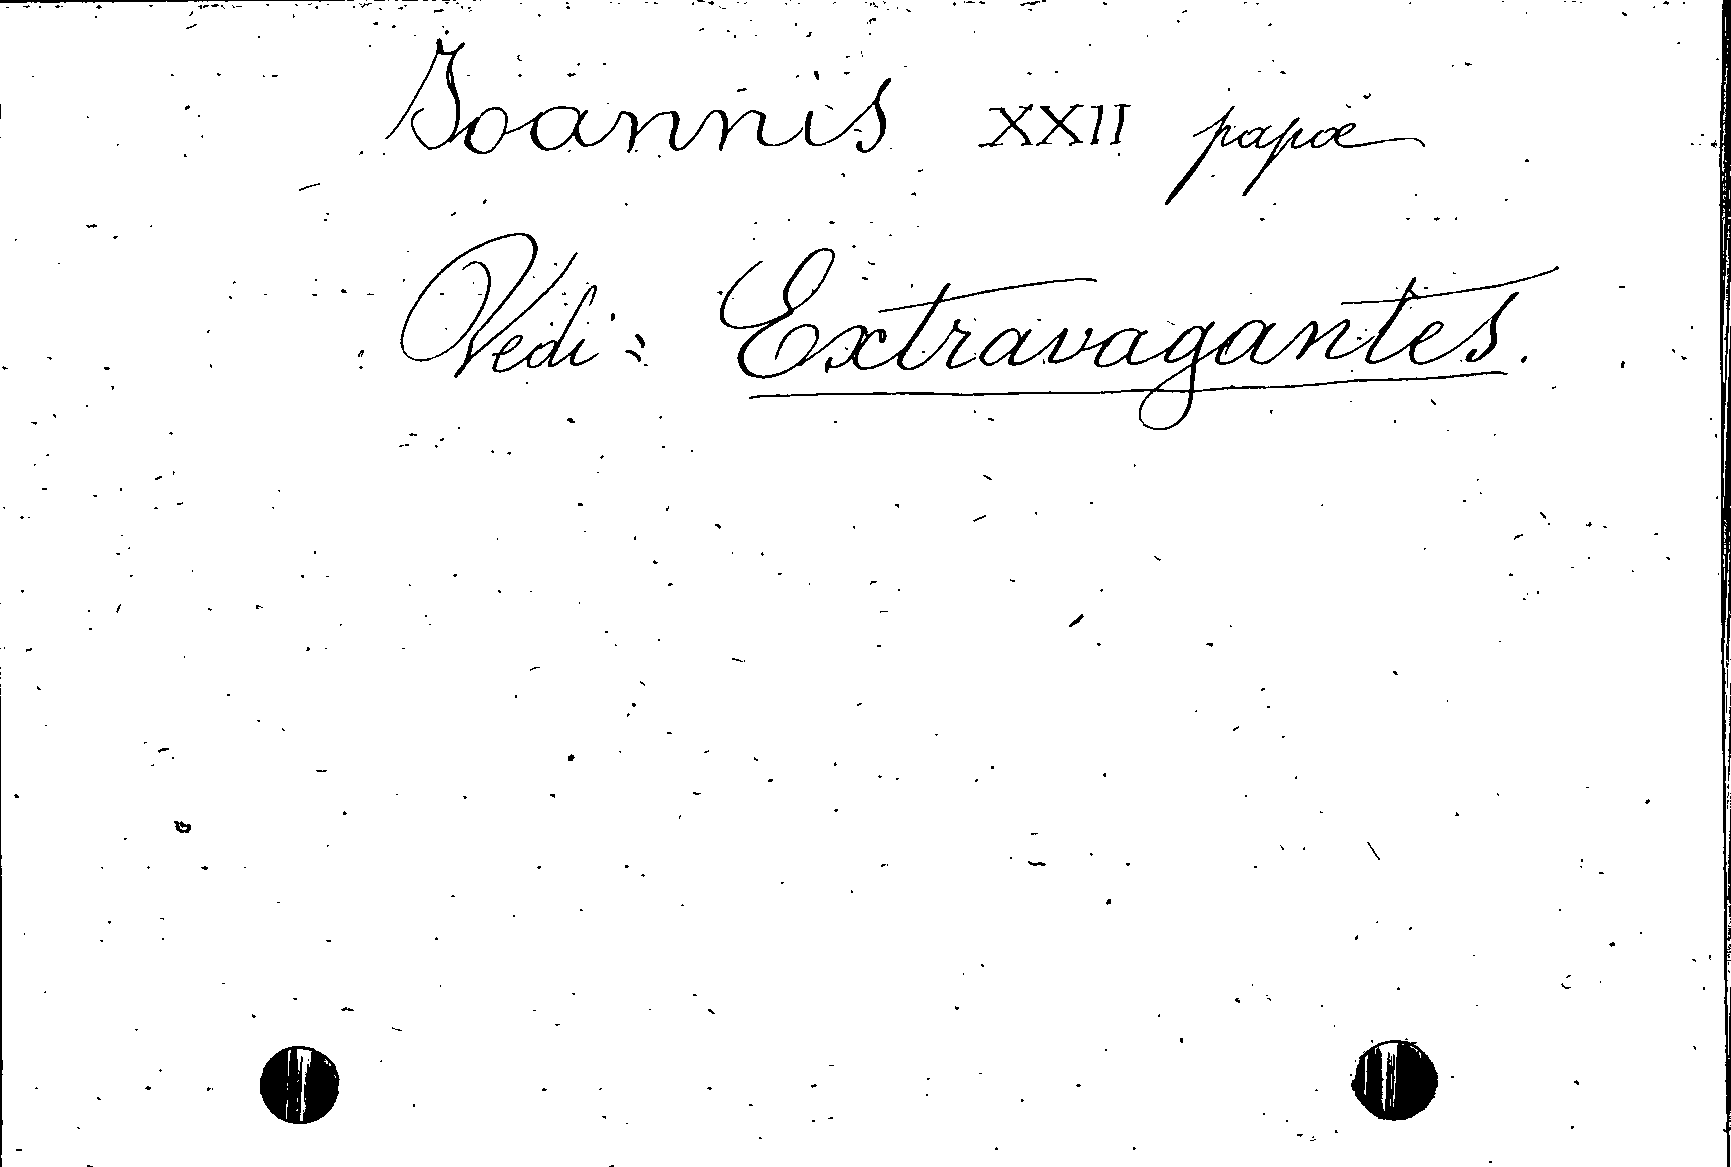 Ioannis XXII papæ
Vedi: Extravagantes.